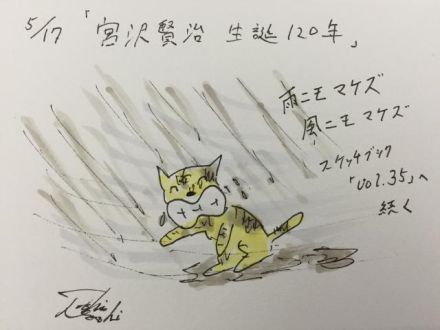 5/17「宮沢賢治 生誕120年」
雨ニモマケズ
風ニモマケズ
スケッチブック
「vol.35」へ
続く